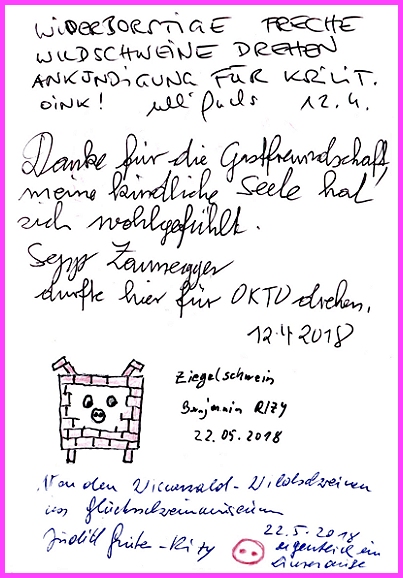 WIDERBORSTIGE FRECHE
WILDSCHWEINE DREHEN
ANKÜNDIGUNG FÜR KRILIT.
OINK! Ulli Fuchs 12.4.
Danke für die Gastfreundschaft,
meine kindliche Seele hat
sich wohlgefühlt.
Sepp
durfte hier für OKTO drehen.
12.4 2018
Ziegelschwein
Benjamin RIZY
22.05.2018
Von den Wienerwald-Wildschweinen
ins Glücksschweinmuseum
Judith -Rizy
22.5.2018
eigentlich ein